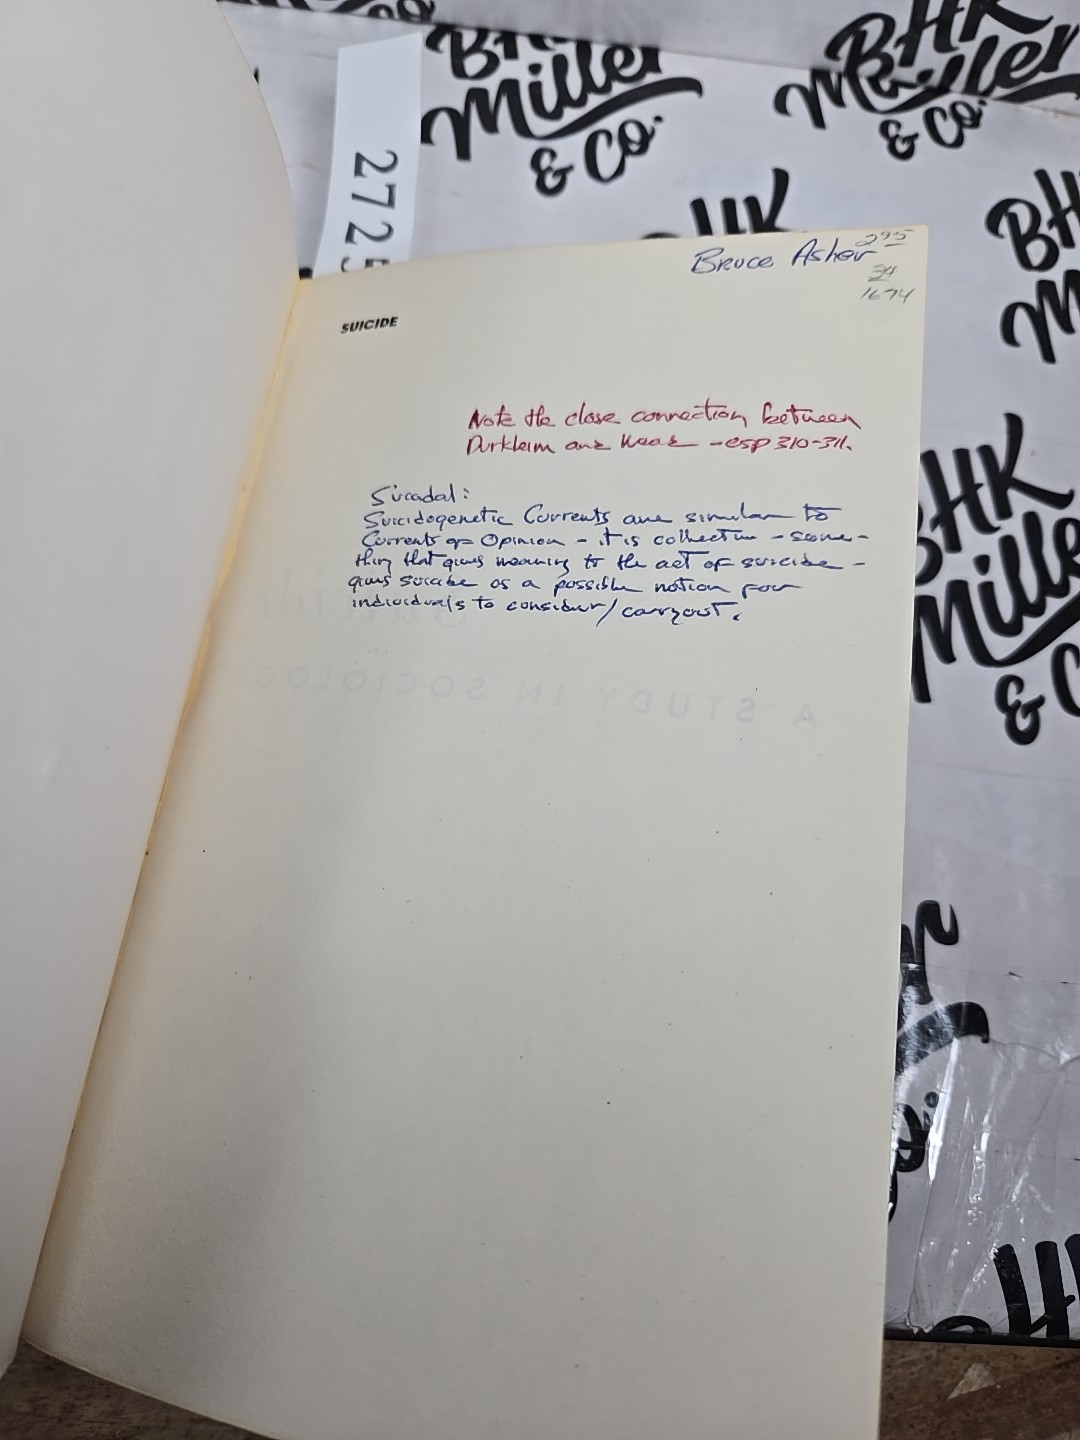 BHK
Miller
& Co.
BHK
Miller
& Co.
2725
BHK
Bruce Asher
295
34
1674
SUICIDE
Note the close connection between
Durkheim and Mead - esp 310-311.
Suicadal:
Suicidogenetic Currents are similar to
Currents of Opinion - it is collective - some-
thing that gives meaning to the act of suicide -
gives suicide as a possible notion for
individuals to consider/carryout.
A STUDY IN SOCIOLOGY
BHK
BHK
Miller
& Co